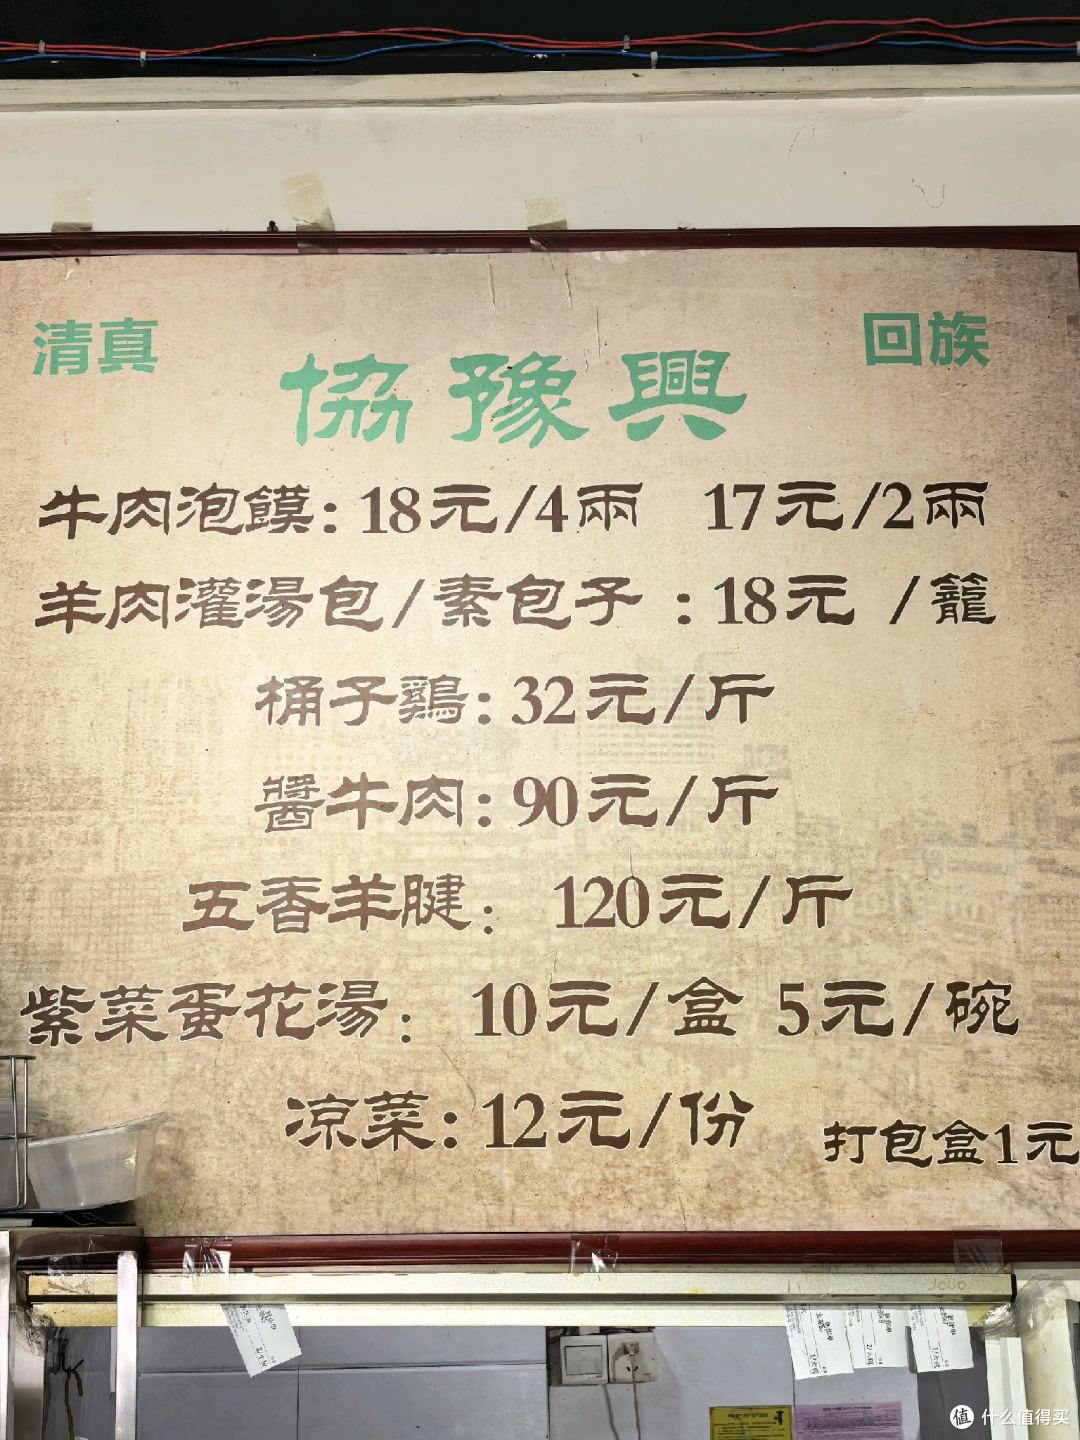 清真
回族
協豫興
牛肉泡饃：18元/4兩 17元/2兩
羊肉灌湯包/素包子：18元/籠
桶子鷄：32元/斤
醬牛肉：90元/斤
五香羊腱：120元/斤
紫菜蛋花湯：10元/盒 5元/碗
凉菜：12元/份
打包盒1元
值 什么值得买